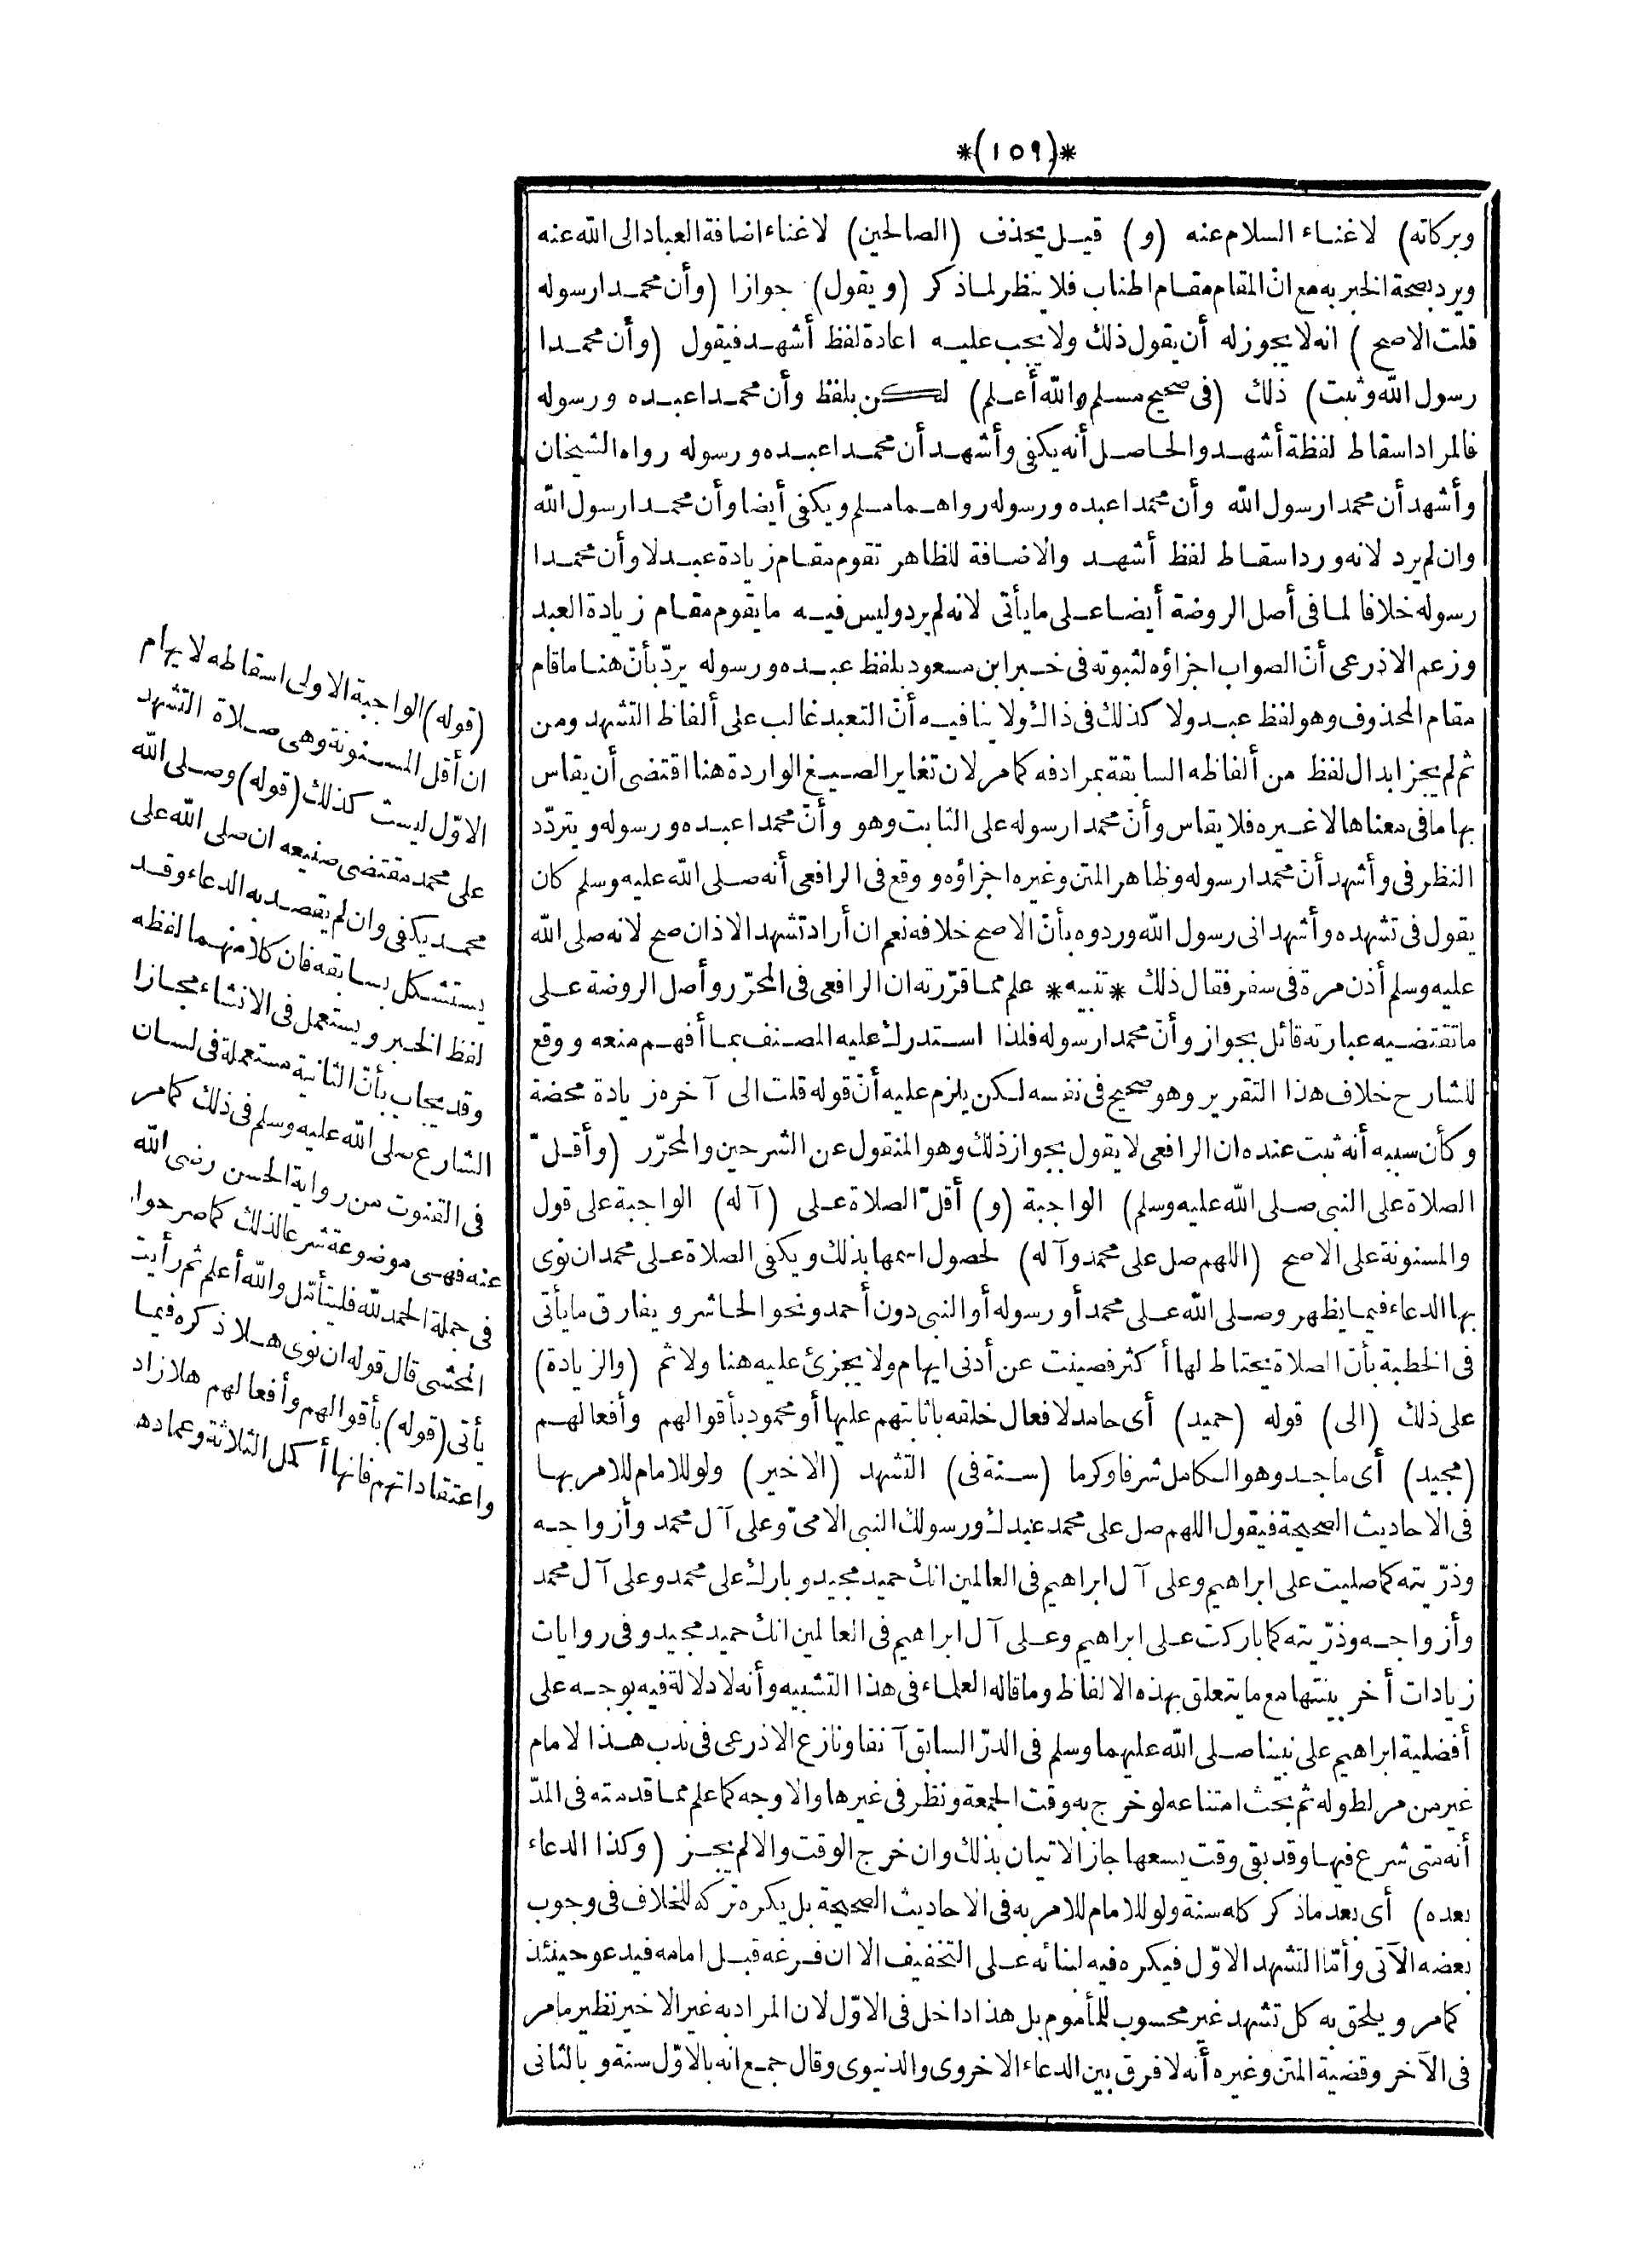 *(١٥٩)*
وبركاته) لاغناء السلام عنه (و) قيل يحذف (الصالحين) لاغناء اضافة العباد الى الله عنه
ويرد بصحة الخبر به مع انّ المقام مقام اطناب فلا ينظر لماذكر (ويقول) جوازا (وأن محمدا رسوله
قلت الاصح) انه لا يجوز له أن يقول ذلك ولا يجب عليه اعادة لفظ أشهد فيقول (وأن محمدا
رسول الله وثبت) ذلك (فى صحيح مسلم والله أعلم) لكن بلفظ وأن محمدا عبده ورسوله
فالمراد اسقاط لفظة أشهد والحاصل أنه يكفى وأشهد أن محمدا عبده ورسوله رواه الشيخان
وأشهد أن محمدا رسول الله وأن محمدا عبده ورسوله رواهما مسلم ويكفى أيضا وأن محمدا رسول الله
وان لم يرد لانه ورد اسقاط لفظ أشهد والاضافة للظاهر تقوم مقام زيادة عبد لا وأن محمدا
رسوله خلافا لما فى أصل الروضة أيضا على ما يأتى لانه لم يرد وليس فيه ما يقوم مقام زيادة العبد
وزعم الاذرعى أنّ الصواب اجزاؤه لثبوته فى خبر ابن مسعود بلفظ عبده ورسوله يردّ بأنّ هنا ما قام
مقام المحذوف وهو لفظ عبد ولا كذلك فى ذاك ولا ينافيه أنّ التعبد غالب على ألفاظ التشهد ومن
ثم لم يجز ابدال لفظ من ألفاظه السابقة بمرادفه كما مر لان تغاير الصيغ الواردة هنا اقتضى أن يقاس
بها ما فى معناها لا غيره فلا يقاس وأنّ محمدا رسوله على الثابت وهو وأنّ محمدا عبده ورسوله ويتردّد
النظر فى وأشهد أنّ محمدا رسوله وظاهر المتن وغيره اجزاؤه ووقع فى الرافعى أنه صلى الله عليه وسلم كان
يقول فى تشهده وأشهد انى رسول الله وردوه بأنّ الاصح خلافه نعم ان أراد تشهد الاذان صح لانه صلى الله
عليه وسلم أذن مرة فى سفر فقال ذلك *تنبيه* علم مما قرّرته ان الرافعى فى المحرّر وأصل الروضة على
ما تقتضيه عبارته قائل بجواز وأنّ محمدا رسوله فلذا استدرك عليه المصنف بما أفهم منعه ووقع
للشارح خلاف هذا التقرير وهو صحيح فى نفسه لكن يلزم عليه أنّ قوله قلت الى آخره زيادة محضة
وكأن سببه أنه ثبت عنده ان الرافعى لا يقول بجواز ذلك وهو المنقول عن الشرحين والمحرّر (وأقلّ
الصلاة على النبى صلى الله عليه وسلم) الواجبة (و) أقلّ الصلاة على (آله) الواجبة على قول
والمسنونة على الاصح (اللهم صل على محمد وآله) لحصول اسمها بذلك ويكفى الصلاة على محمد ان نوى
بها الدعاء فيما يظهر وصلى الله على محمد أو رسوله أو النبى دون أحمد ونحو الحاشر ويفارق ما يأتى
فى الخطبة بأنّ الصلاة يحتاط لها أكثر فصينت عن أدنى ايهام ولا يجزئ عليه هنا ولا ثم (والزيادة)
على ذلك (الى) قوله (حميد) أى حامد لافعال خلقه باثابتهم عليها أو محمود بأقوالهم وأفعالهم
(مجيد) أى ماجد وهو الكامل شرفا وكرما (سنة فى) التشهد (الاخير) ولو للامام للامر بها
فى الاحاديث الصحيحة فيقول اللهم صل على محمد عبدك ورسولك النبى الامىّ وعلى آل محمد وأزواجه
وذرّيته كما صليت على ابراهيم وعلى آل ابراهيم فى العالمين انك حميد مجيد وبارك على محمد وعلى آل محمد
وأزواجه وذرّيته كما باركت على ابراهيم وعلى آل ابراهيم فى العالمين انك حميد مجيد وفى روايات
زيادات أخر بينتها مع ما يتعلق بهذه الالفاظ وما قاله العلماء فى هذا التشبيه وأنه لا دلالة فيه بوجه على
أفضلية ابراهيم على نبينا صلى الله عليهما وسلم فى الدرّ السابق آنفا ونازع الاذرعى فى ندب هذا لامام
غير من مر لطوله ثم بحث امتناعه لو خرج به وقت الجمعة ونظر فى غيرها والاوجه كما علم مما قدمته فى المدّ
أنه متى شرع فيها وقد بقى وقت يسعها جاز الاتيان بذلك وان خرج الوقت والا لم يجز (وكذا الدعاء
بعده) أى بعد ما ذكر كله سنة ولو للامام للامر به فى الاحاديث الصحيحة بل يكره تركه للخلاف فى وجوب
بعضه الآتى وأمّا التشهد الاوّل فيكره فيه لبنائه على التخفيف الا ان فرغه قبل امامه فيدعو حينئذ
كما مر ويلحق به كل تشهد غير محسوب للمأموم بل هذا داخل فى الاوّل لان المراد به غير الاخير نظير ما مر
فى الآخر وقضية المتن وغيره أنه لا فرق بين الدعاء الاخروى والدنيوى وقال جمع انه بالاوّل سنة وبالثانى
(قوله) الواجبة الاولى اسقاطه لايهام
ان أقل المسنونة وهى صلاة التشهد
الاوّل ليست كذلك (قوله) وصلى الله
على محمد مقتضى صنيعه ان صلى الله على
محمد يكفى وان لم يقصد به الدعاء وقد
يستشكل بسابقه فان كلا منهما لفظه
لفظ الخبر ويستعمل فى الانشاء مجازا
وقد يجاب بأنّ الثانية مستعملة فى لسان
الشارع صلى الله عليه وسلم فى ذلك كما مر
فى القنوت من رواية الحسن رضى الله
عنه فهى موضوعة شرعا لذلك كما صرحوا
فى جملة الحمد لله فليتأمّل والله أعلم ثم رأيت
المحشى قال قوله ان نوى هلا ذكره فيما
يأتى (قوله) بأقوالهم وأفعالهم هلا زاد
واعتقاداتهم فانها أكمل الثلاثة وعماده